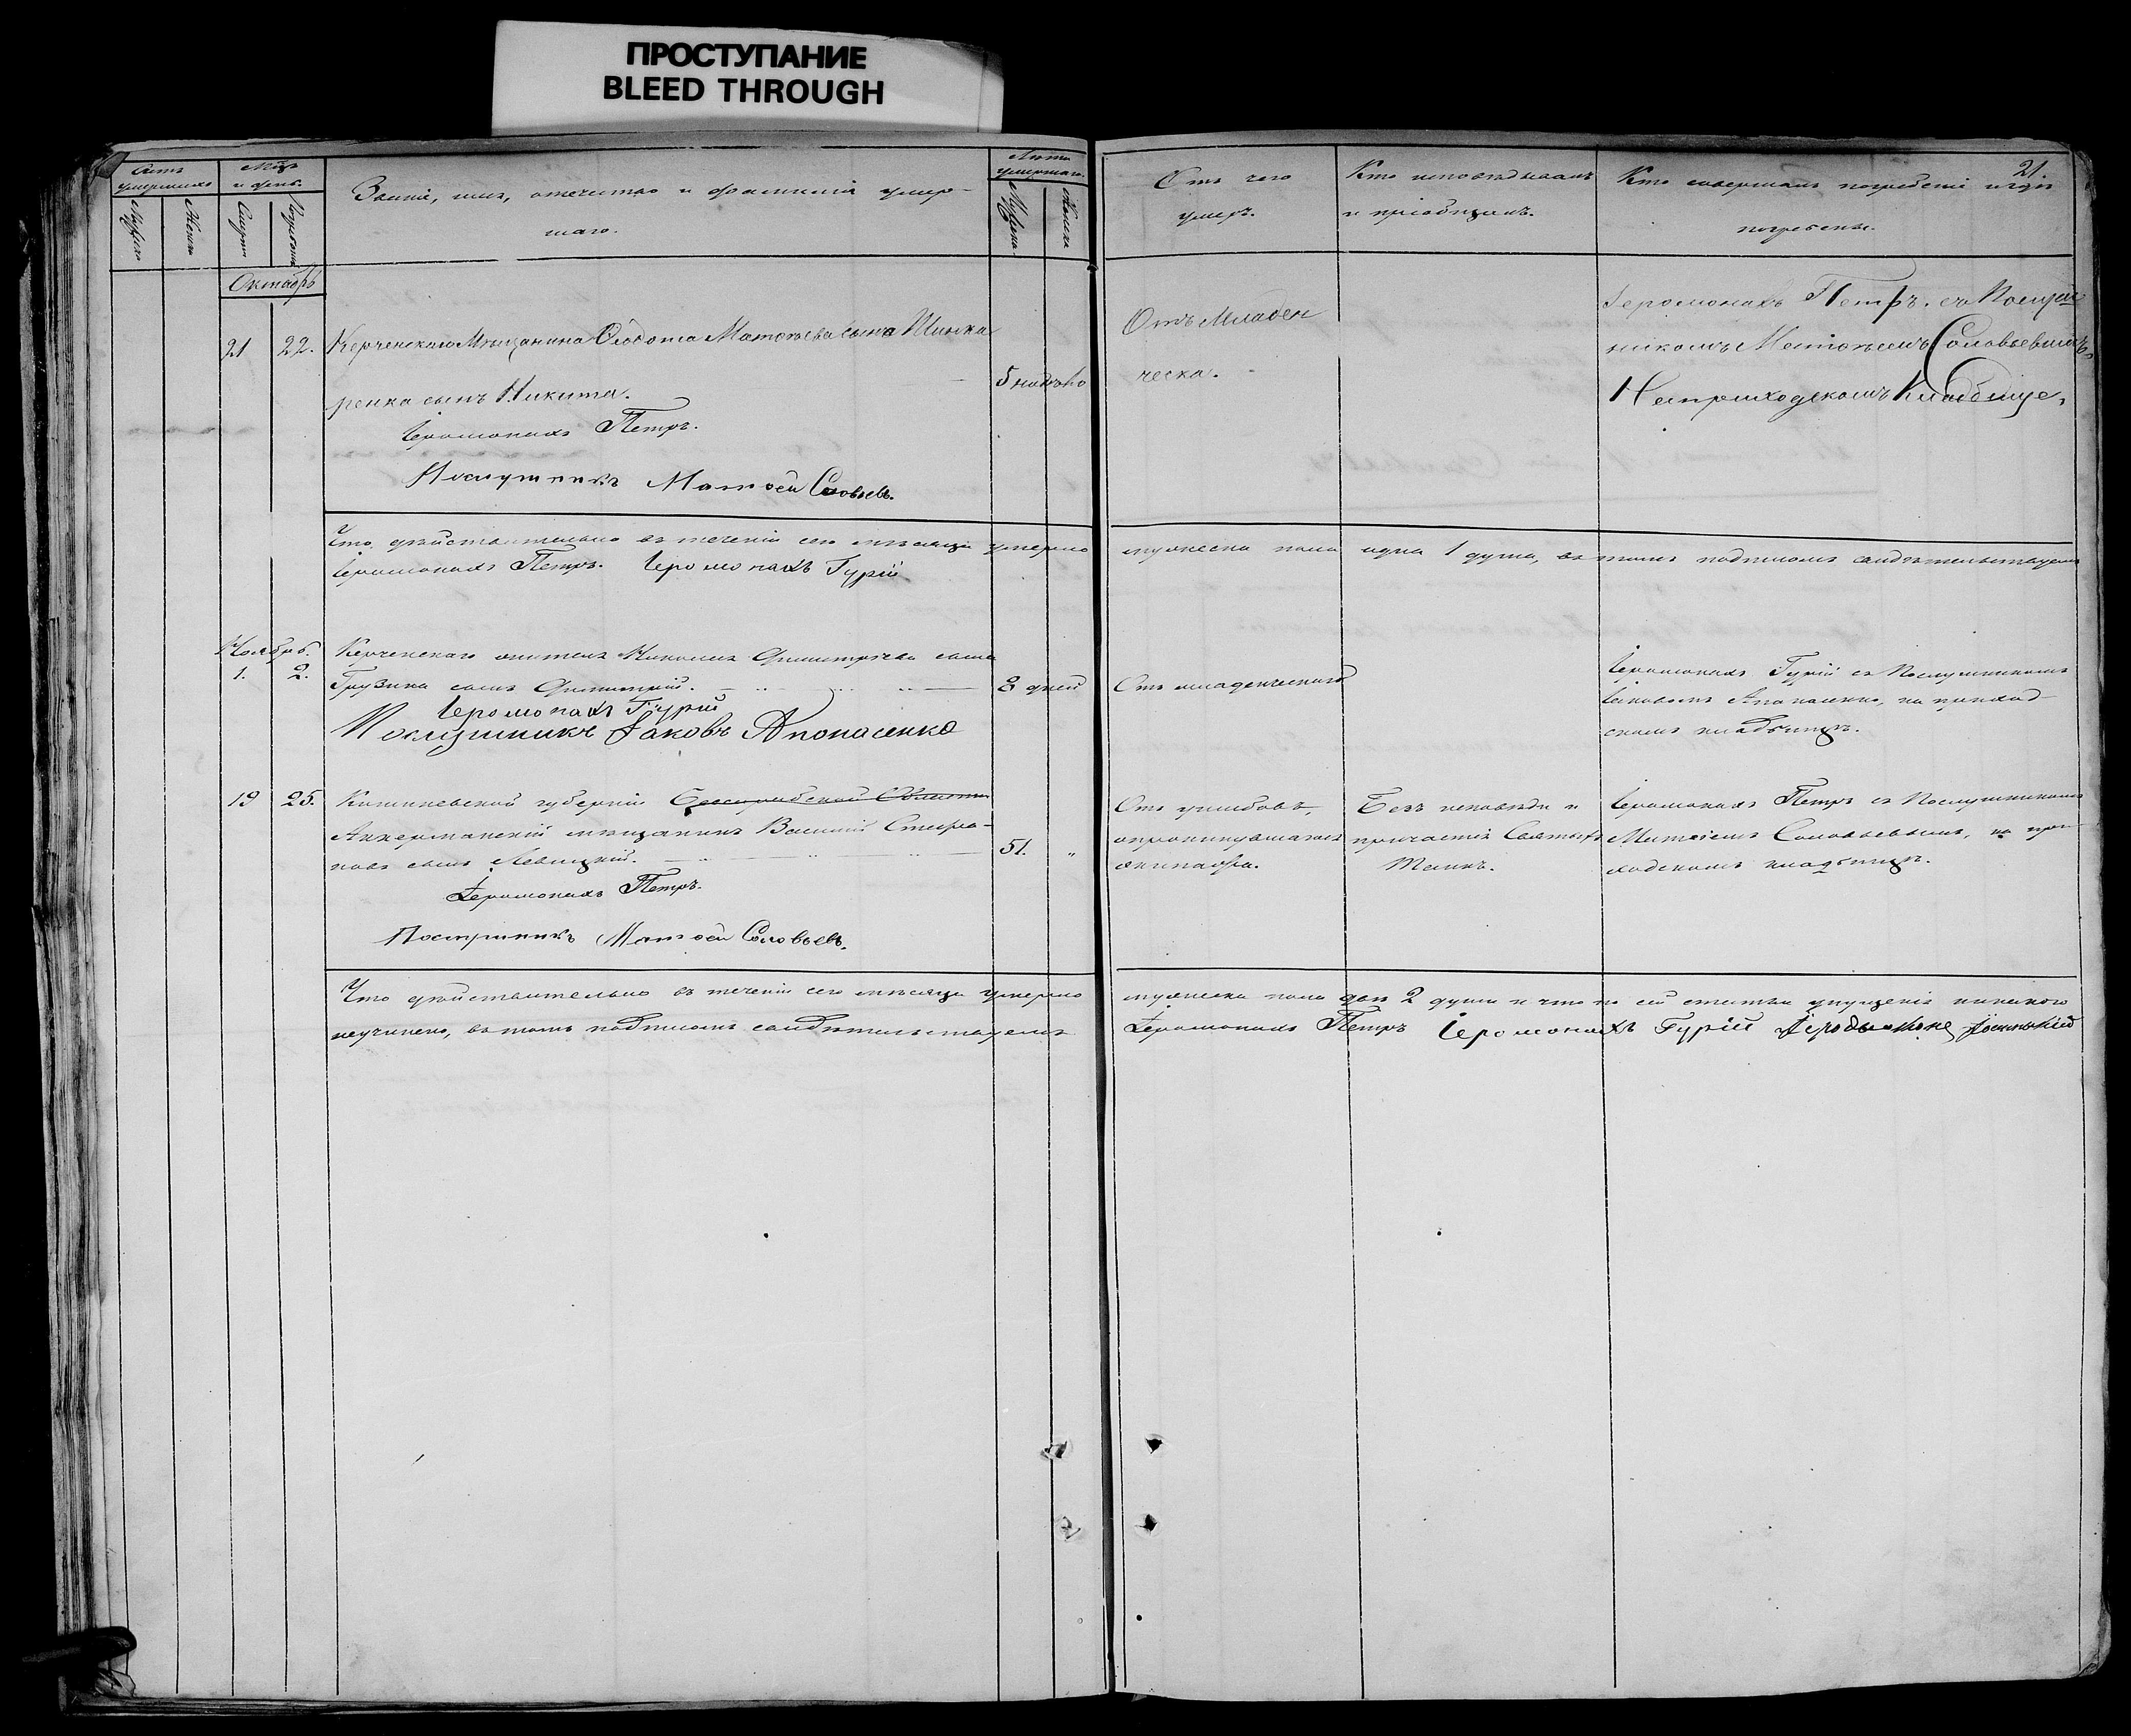 ПРОСТУПАНИЕ
BLEED THROUGH
21.
Счетъ умершихъ
Мужск.
Женск.
Мѣц. и день.
Смерти
Погребенія
Званіе, имя, отечество и фамилія умер-
шаго.
Лѣта умершаго.
Мужеска
Женска
Отъ чего
умеръ.
Кто исповѣдывалъ
и пріобщалъ.
Кто совершалъ погребеніе и гдѣ
погребены.
Октябрь
21 22. Керченскаго Мѣщанина Ѳеодота Матѳѣева сына Шинка
ренка сынъ Никита.
Іеромонахъ Петръ.
Послушникъ Матѳей Соловьевъ.
5
Отъ Младен
ческа.
Іеромонахъ Петръ. съ Послуш
никомъ Матѳѣемъ Соловьевымъ
На приходскомъ Кладбище,
Что дѣйствительно въ теченіи сего мѣсяца умерло мужеска пола одна 1 душа, въ томъ подписомъ свидѣтельствуемъ
Іеромонахъ Петръ. Іеромонахъ Гурій
Ноябрь.
1. 2. Керченскаго жителя Николая Димитріева сына
Грузина сынъ Димитрій.
Іеромонахъ Гурій
Послушникъ Іаковъ Апонасенко
8 дней
Отъ младенческой
Іеромонахъ Гурій съ Послушникомъ
Іаковомъ Апанасенко, на приход-
скомъ кладбищѣ.
19 25. Кишиневской губерніи Бессарабской Области
Аккерманскій мѣщанинъ Василій Стефа-
новъ сынъ Левицкій.
Іеромонахъ Петръ.
Послушникъ Матѳей Соловьевъ.
51. "
Отъ ушибовъ,
опрокинувшагося
экипажа.
Безъ исповѣди и
причастія Святыхъ
Таинъ.
Іеромонахъ Петръ съ Послушникомъ
Матѳіемъ Соловьевымъ, на при-
ходскомъ кладбищѣ.
Что дѣйствительно въ теченіи сего мѣсяца умерло мужеска пола двѣ 2 души и что по сей статьѣ упущенія никакого
неучинено, въ томъ подписомъ свидѣтельствуемъ Іеромонахъ Петръ Іеромонахъ Гурій